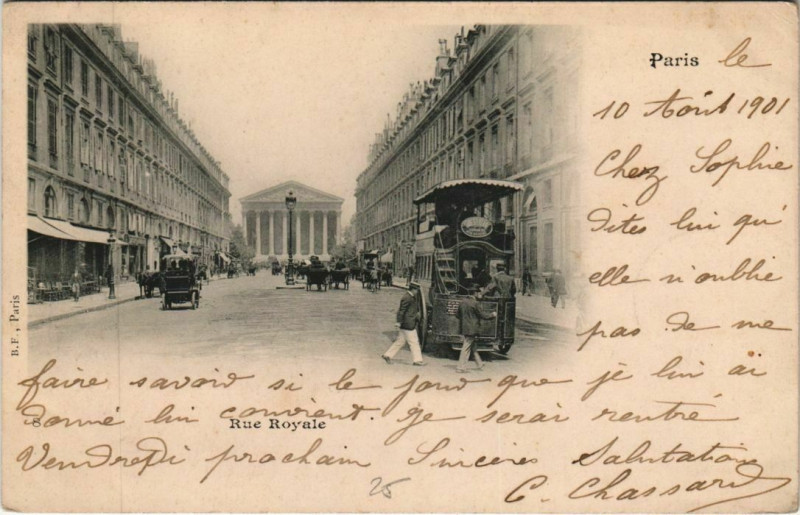 Paris le
10 Août 1901
Chez Sophie
dites lui qu'
elle n'oublie
pas de me
faire savoir si le jour que je lui ai
donné lui convient. je serai rentré
Vendredi prochain Sincères Salutations
C. Chassard
8
Rue Royale
B.F., Paris
25